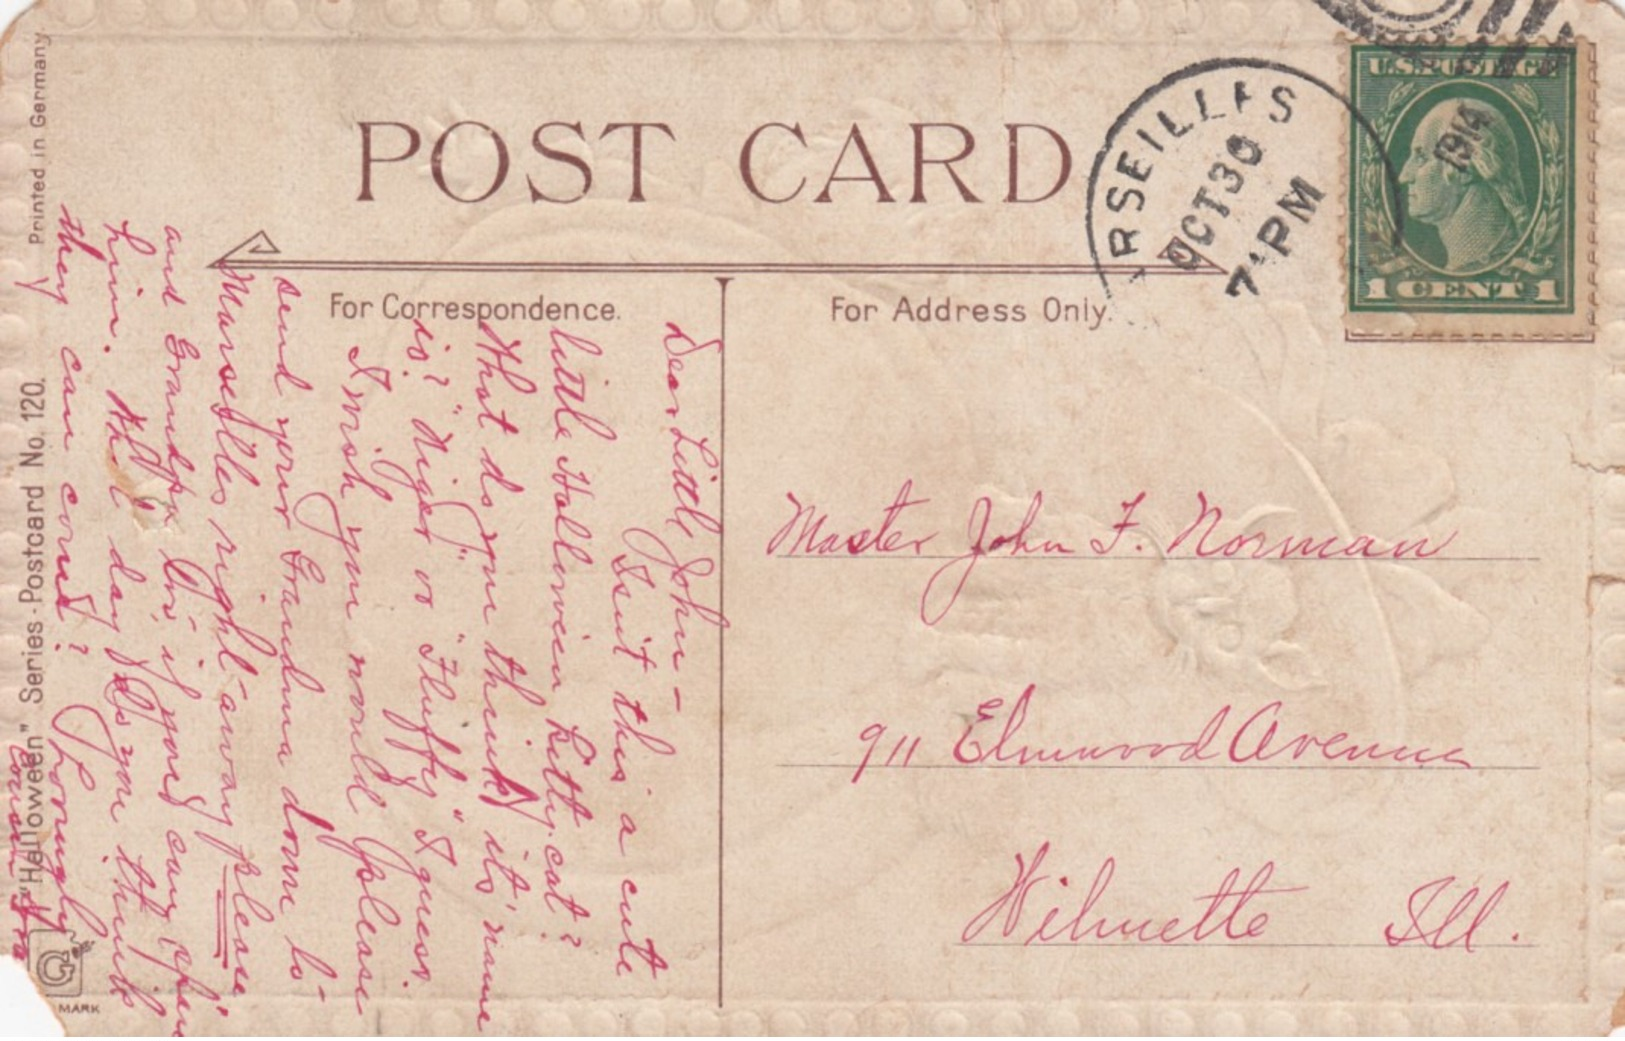 POST CARD
RSEILLES
OCT 30
7 PM
1914
U.S. POSTAGE
1 CENT 1
For Correspondence.
For Address Only.
Dear Little John -
Isn't this a cute
little Hallowein Kitty-cat?
What do you think its' name
is? "Niger" or "Fluffy" I guess.
I wish you would please
send your Grandma down to-
Marseilles right-away please
and Grandpa too, if you can
him. What day do you think
they can come?
Lovingly
Cousin
Master John F. Norman
911 Elmwood Avenue
Wilmette Ill.
Printed in Germany.
"Halloween" Series - Postcard No. 120.
G
MARK